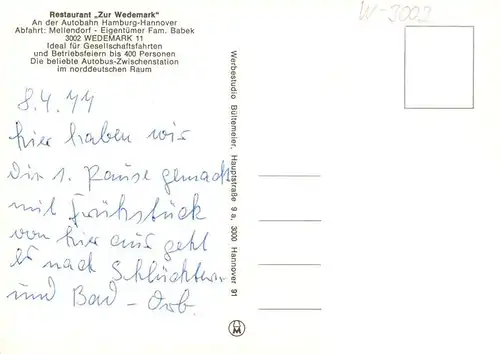 Restaurant „Zur Wedemark“
An der Autobahn Hamburg-Hannover
Abfahrt: Mellendorf - Eigentümer Fam. Babek
3002 WEDEMARK 11
Ideal für Gesellschaftsfahrten
und Betriebsfeiern bis 400 Personen
Die beliebte Autobus-Zwischenstation
im norddeutschen Raum
W-3003
8.4.77
hier haben wir
die 1. Pause gemacht
mit Frühstück
von hier aus geht
es nach Schlüchtern
und Bad-Orb.
Werbestudio Bültemeier, Hauptstraße 9 a, 3000 Hannover 91